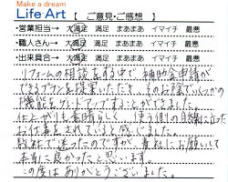 Make a dream
Life Art 【 ご意見・ご感想 】
・営業担当→ 大満足 満足 まあまあ イマイチ 最悪
・職人さん→ 大満足 満足 まあまあ イマイチ 最悪
・出来具合→ 大満足 満足 まあまあ イマイチ 最悪
リフォームの相談をする中で、補助金申請が
できるプランを提案いただき、そのお陰でいくつかの
機能をセットアップすることができました。
仕上がりも素晴らしく、使う側の目線に立った
お仕事をされていると感じました。
数社で迷ったのですが、貴社にお願いして
本当に良かったと思います。
この度はありがとうございました。